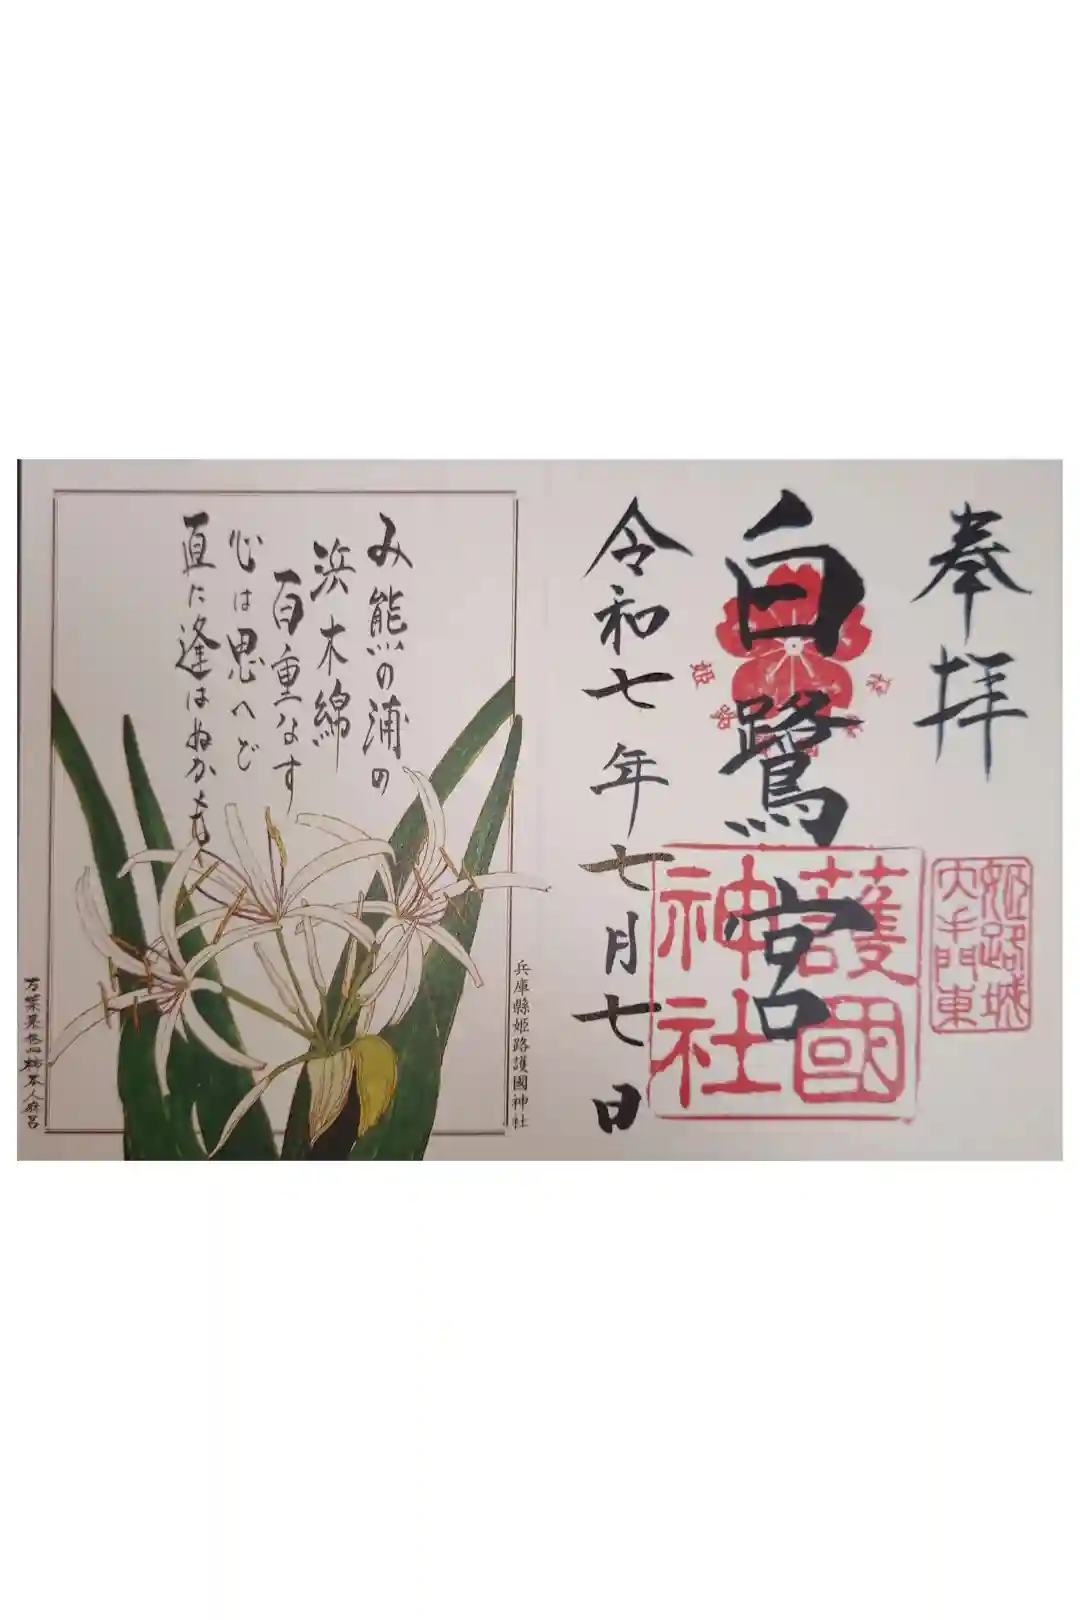 奉拝
姫路城
大手門東
白鷺宮
護國
神社
令和七年七月七日
兵庫縣姫路護國神社
み熊の浦の
浜木綿
百重なす
心は思へど
直に逢はぬかも
万葉集巻四柿本人麻呂